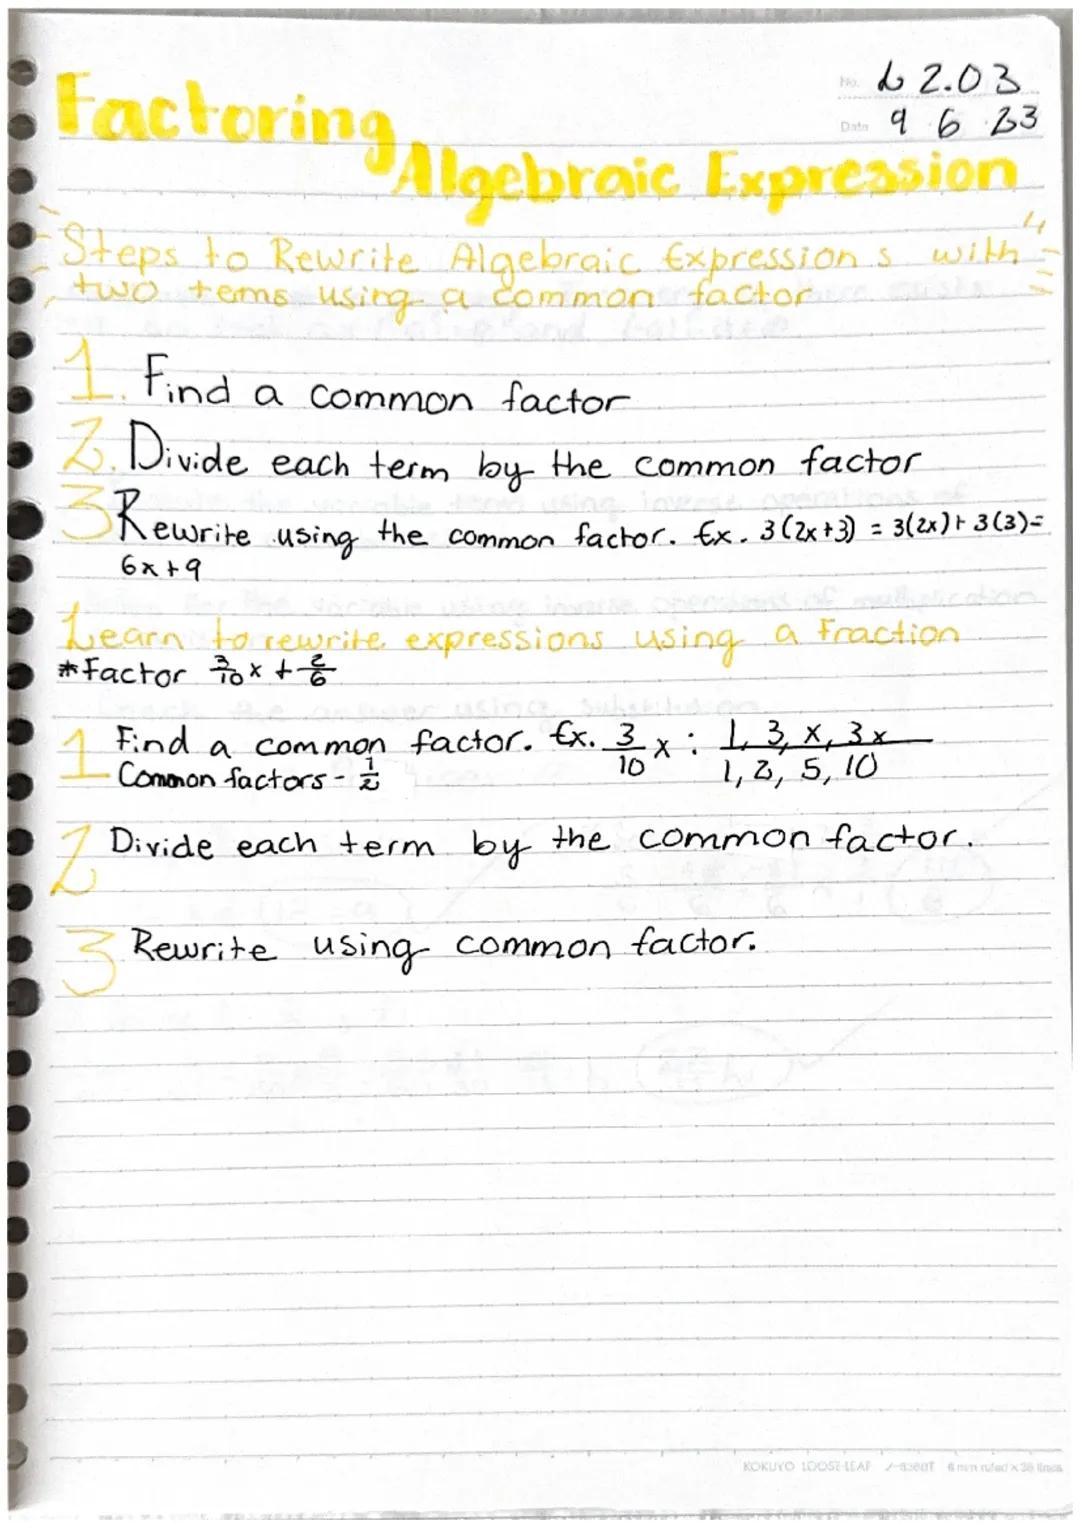 No. L 2.03
Date 9 6 23
Factoring
Algebraic Expression
Steps to Rewrite Algebraic Expressions with
two tems using a common factor
1. Find a common factor
2. Divide each term by the common factor
3 Rewrite using the common factor. Ex. 3(2x+3) = 3(2x)+3(3)=
6x+9
Learn to rewrite expressions using a Fraction
*Factor 3/10 x + 2/6
1 Find a common factor. Ex. 3/10 x : 1, 3, x, 3x / 1, 2, 5, 10
Common factors - 1/2
2 Divide each term by the common factor.
3 Rewrite using common factor.
KOKUYO LOOSE-LEAF 6 mm ruled x 36 lines